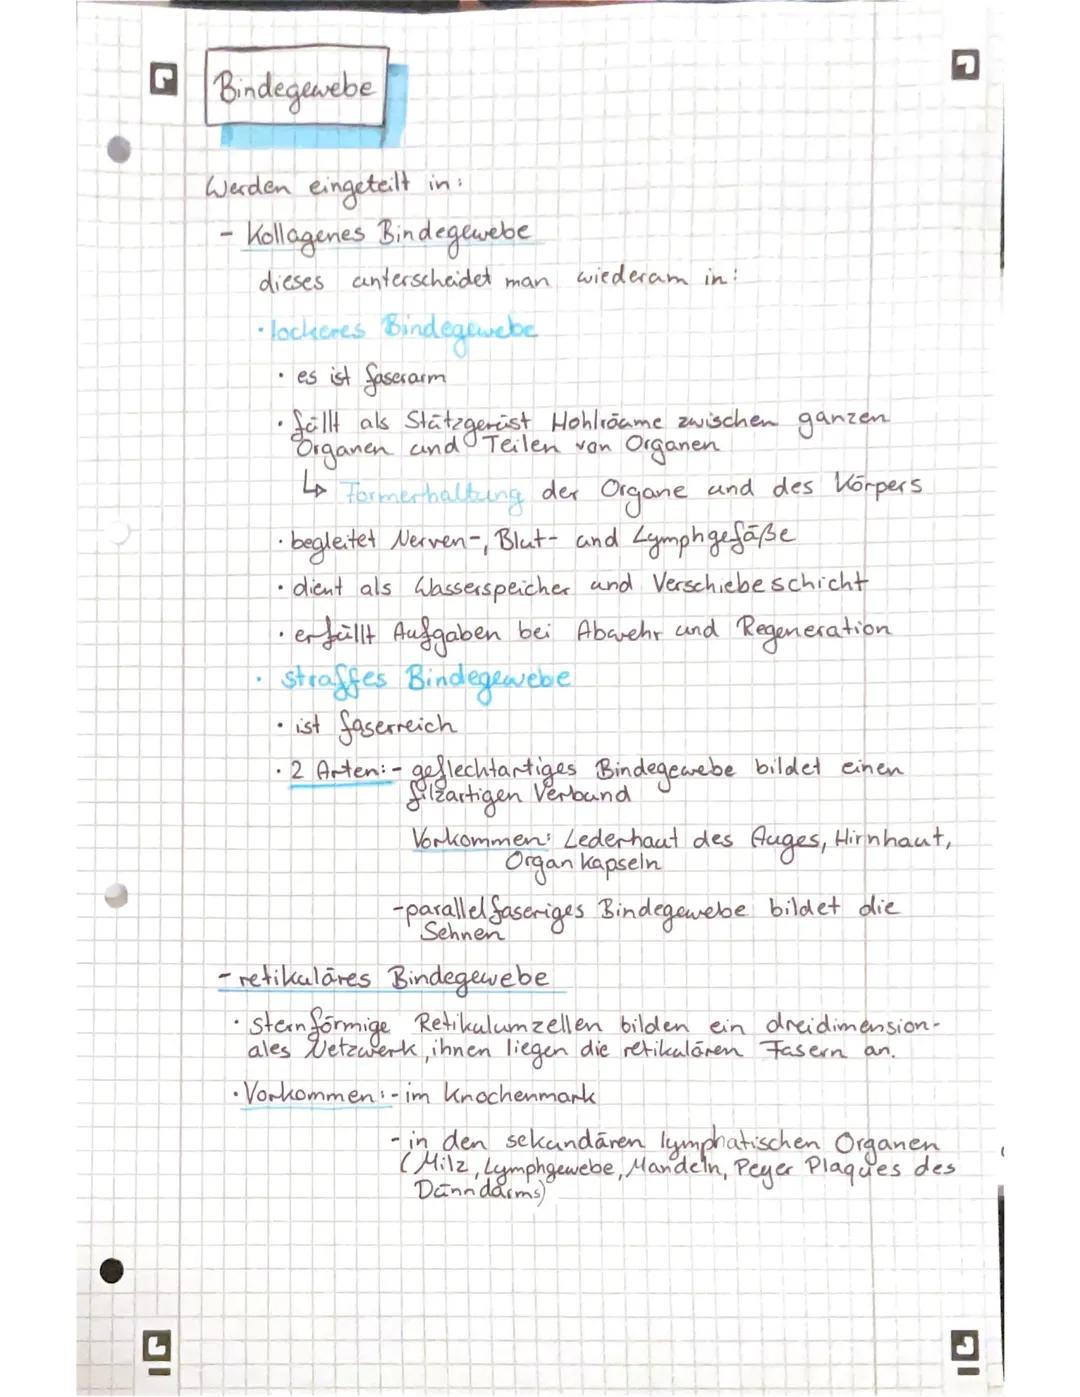 Bindegewebe
Werden eingeteilt in:
- Kollagenes Bindegewebe
dieses unterscheidet man wiederum in:
· lockeres Bindegewebe
· es ist faserarm
· füllt als Stützgerüst Hohlräume zwischen ganzen
Organen und Teilen von Organen
↳ Formerhaltung der Organe und des Körpers
· begleitet Nerven-, Blut- und Lymphgefäße
· dient als Wasserspeicher und Verschiebeschicht
· erfüllt Aufgaben bei Abwehr und Regeneration
· straffes Bindegewebe
· ist faserreich
· 2 Arten: - geflechtartiges Bindegewebe bildet einen
filzartigen Verband
Vorkommen: Lederhaut des Auges, Hirnhaut,
Organkapseln
- parallelfaseriges Bindegewebe bildet die
Sehnen
- retikuläres Bindegewebe
· sternförmige Retikulumzellen bilden ein dreidimension-
ales Netzwerk, ihnen liegen die retikulären Fasern an.
· Vorkommen: - im Knochenmark
- in den sekundären lymphatischen Organen
(Milz, Lymphgewebe, Mandeln, Peyer Plaques des
Dünndarms)